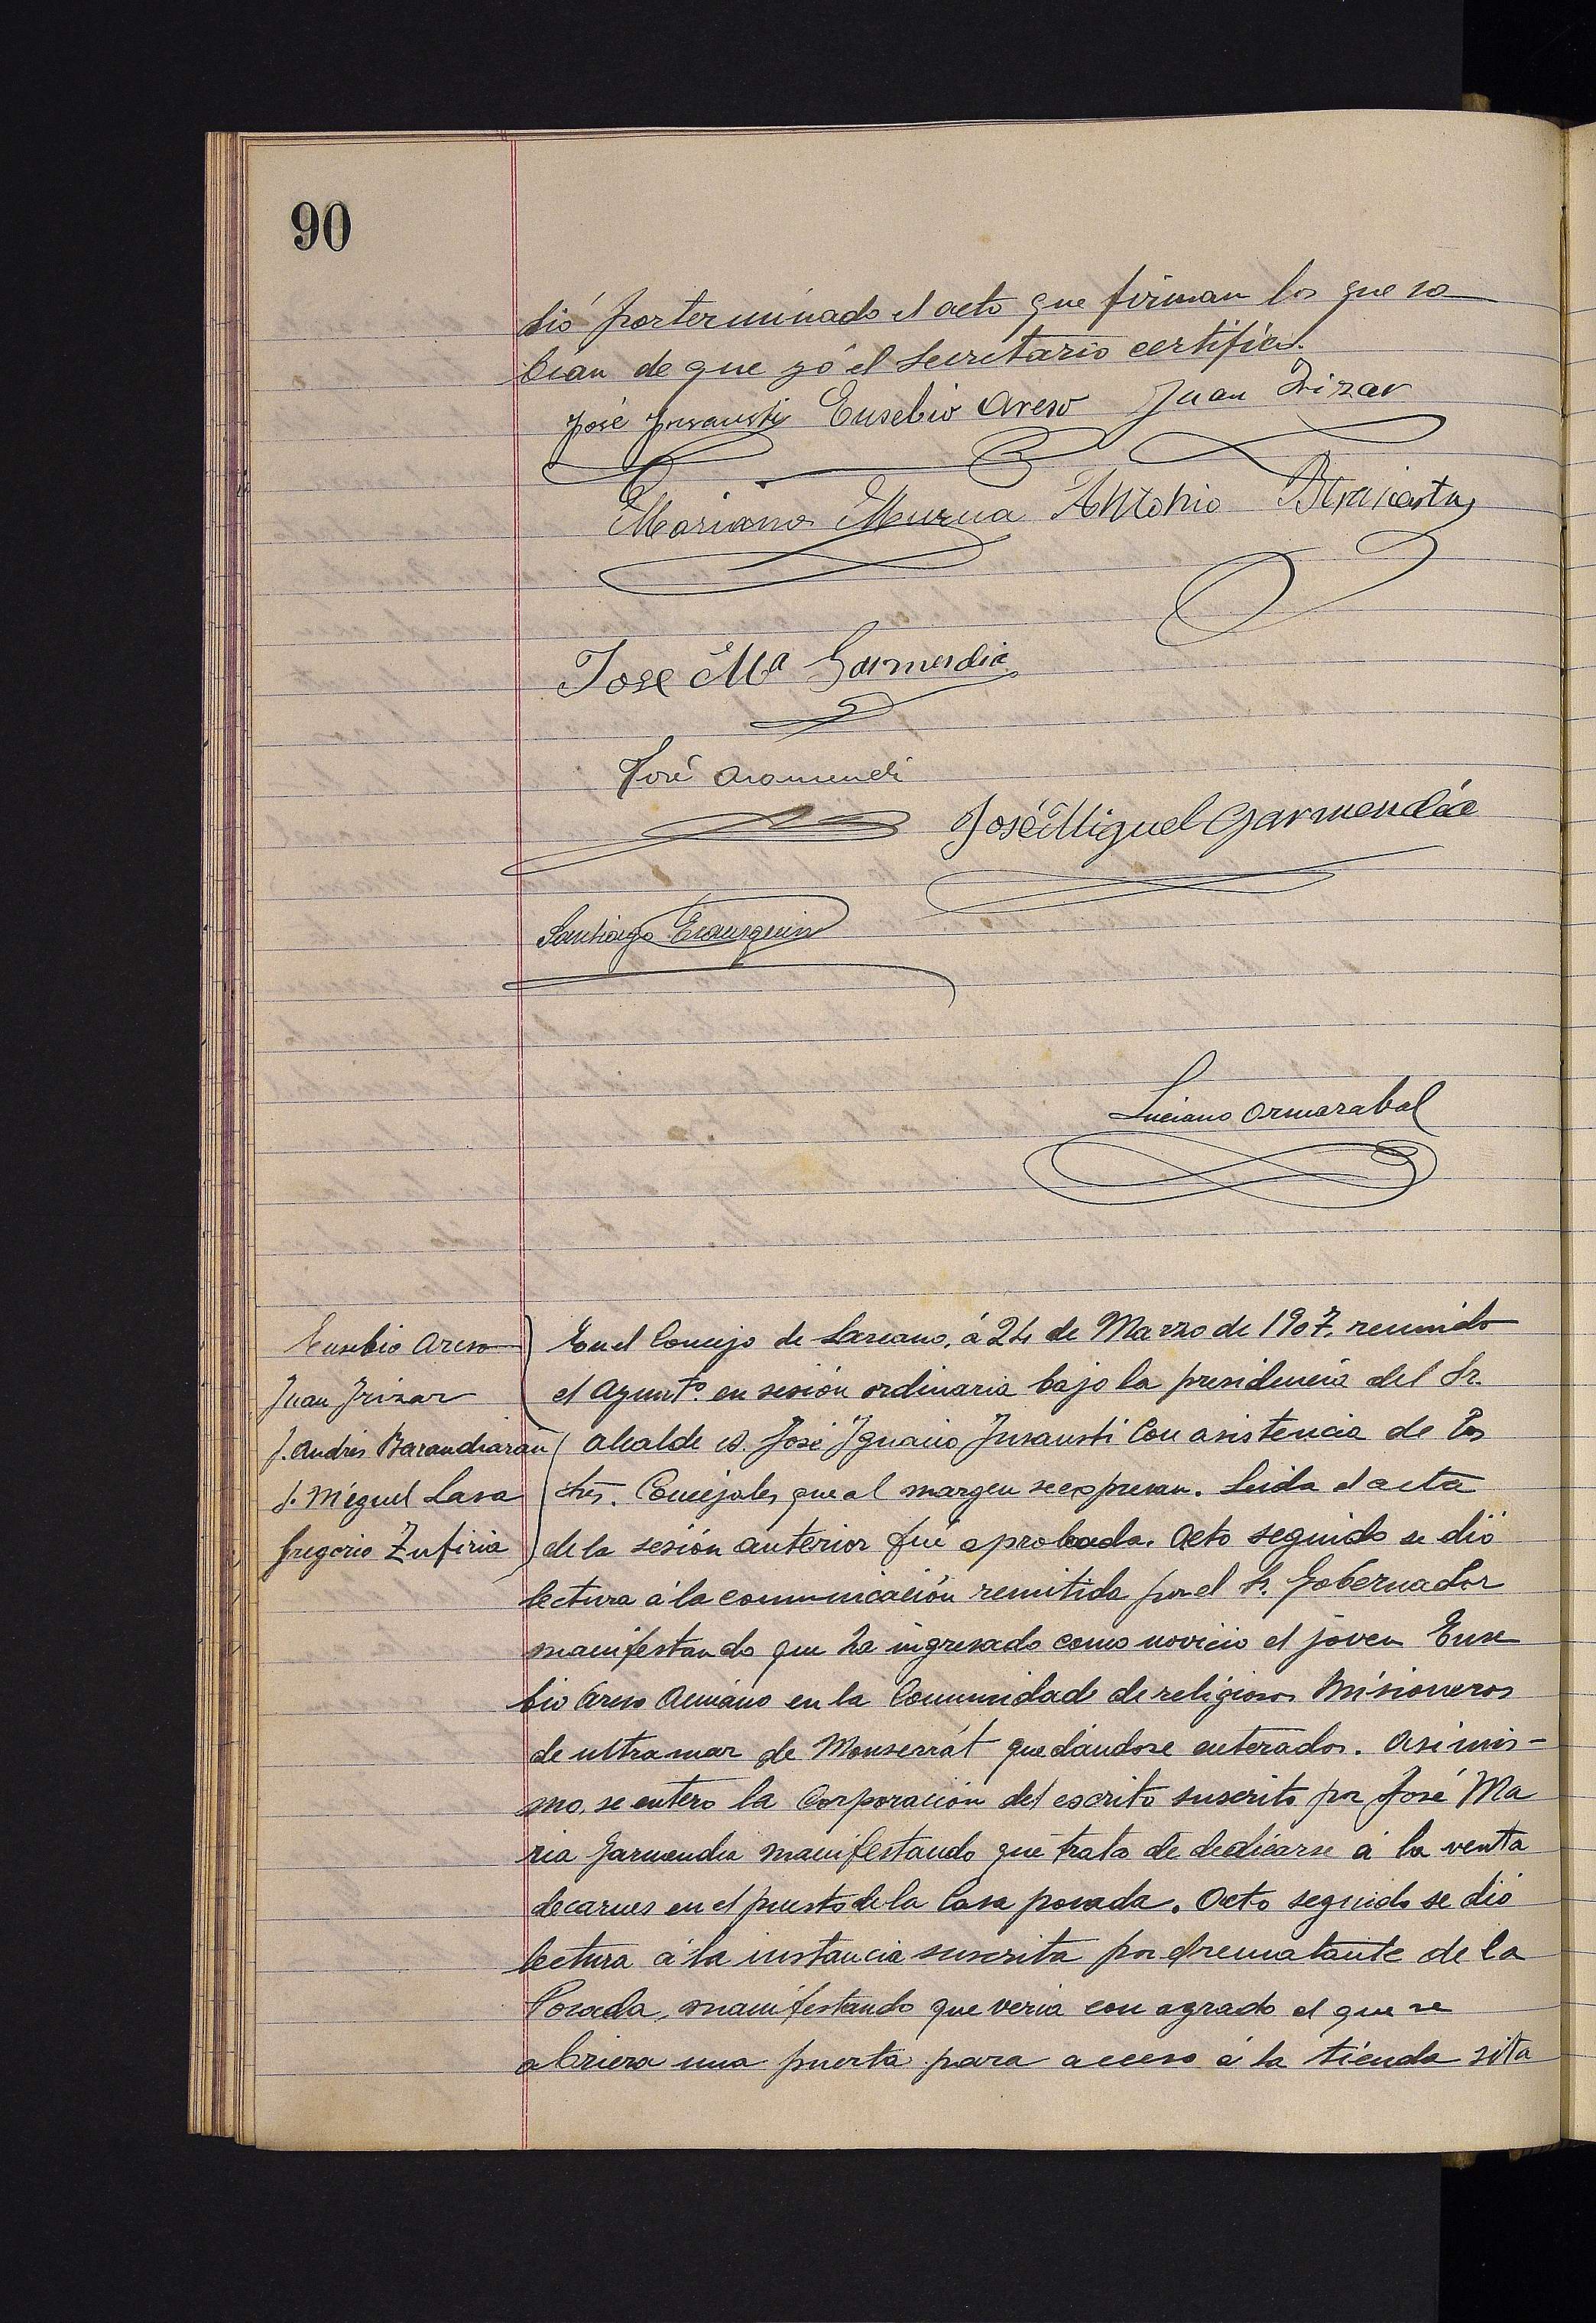 90
dió por terminado el acto que firman los que sa
bían de que yó el Secretario certifico.
José Insausti Eusebio Areso Juan Irizar
Mariano Murua Antonio
Jose Mª Garmendia
José Aramendi
José Miguel Garmendia
Santiago Erausquin
Luciano Ormazabal
Eusebio Areso
Juan Irizar
J. Andrés Barandiarán
J. Miguel Lasa
Gregorio Zufiria
En el Concejo de Lazcano, á 24 de Marzo de 1907, reunido
el Ayuntº. en sesión ordinaria bajo la presidencia del Sr.
Alcalde D. José Ignacio Insausti Con asistencia de los
Sres. Concejales que al margen se expresan. Leida el acta
de la sesión anterior fué aprobada. Acto seguido se dió
lectura á la comunicación remitida por el Sr. Gobernador
manifestando que ha ingresado como novicio el jóven Euse
bio Areso en la Comunidad de religiosos Misioneros
de ultramar de Monserrát quedándose enterados. Asimis-
mo, se entero la Corporación del escrito suscrito por José Ma
ria Garmendia manifestando que trata de dedicarse á la venta
de carnes en el puesto de la Casa posada. Acto seguido se dió
lectura á la instancia suscrita por el rematante de la
Posada, manifestando que veria con agrado el que se
abriera una puerta para acceso á la tienda sita